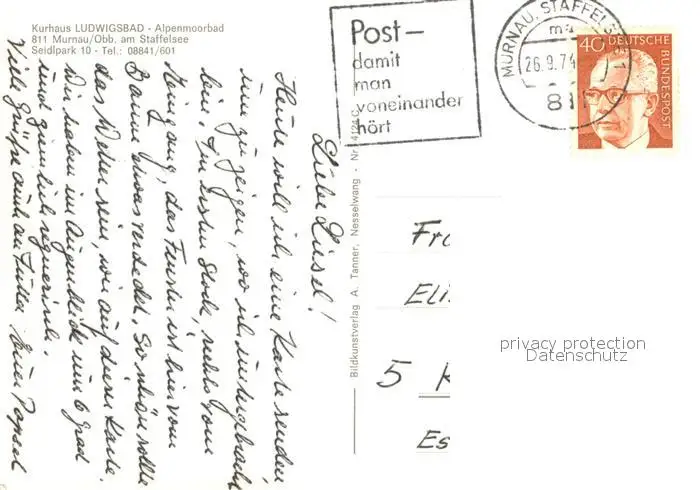 Kurhaus LUDWIGSBAD - Alpenmoorbad
811 Murnau/Obb. am Staffelsee
Seidlpark 10 - Tel.: 08841/601
Post-
damit
man
voneinander
hört
MURNAU, STAFFELS
ma
26.9.74
811
40 DEUTSCHE
BUNDESPOST
Liebe Liesel!
Heute will ich eine Karte senden
um zu zeigen, wo ich untergebracht
bin. Im ersten Stock, rechts vom
Haus, das Fenster ist hier vom
Baum etwas verdeckt. So schön sollte
das Wetter sein, wie auf dieser Karte.
Wir haben im Augenblick um 6 Grad
und ziemlich regnerisch.
Viele Grüße auch an
Bildkunstverlag A. Tanner, Nesselwang - Nr. 4124 C
Fr
Eli
5 K
Es
privacy protection
Datenschutz